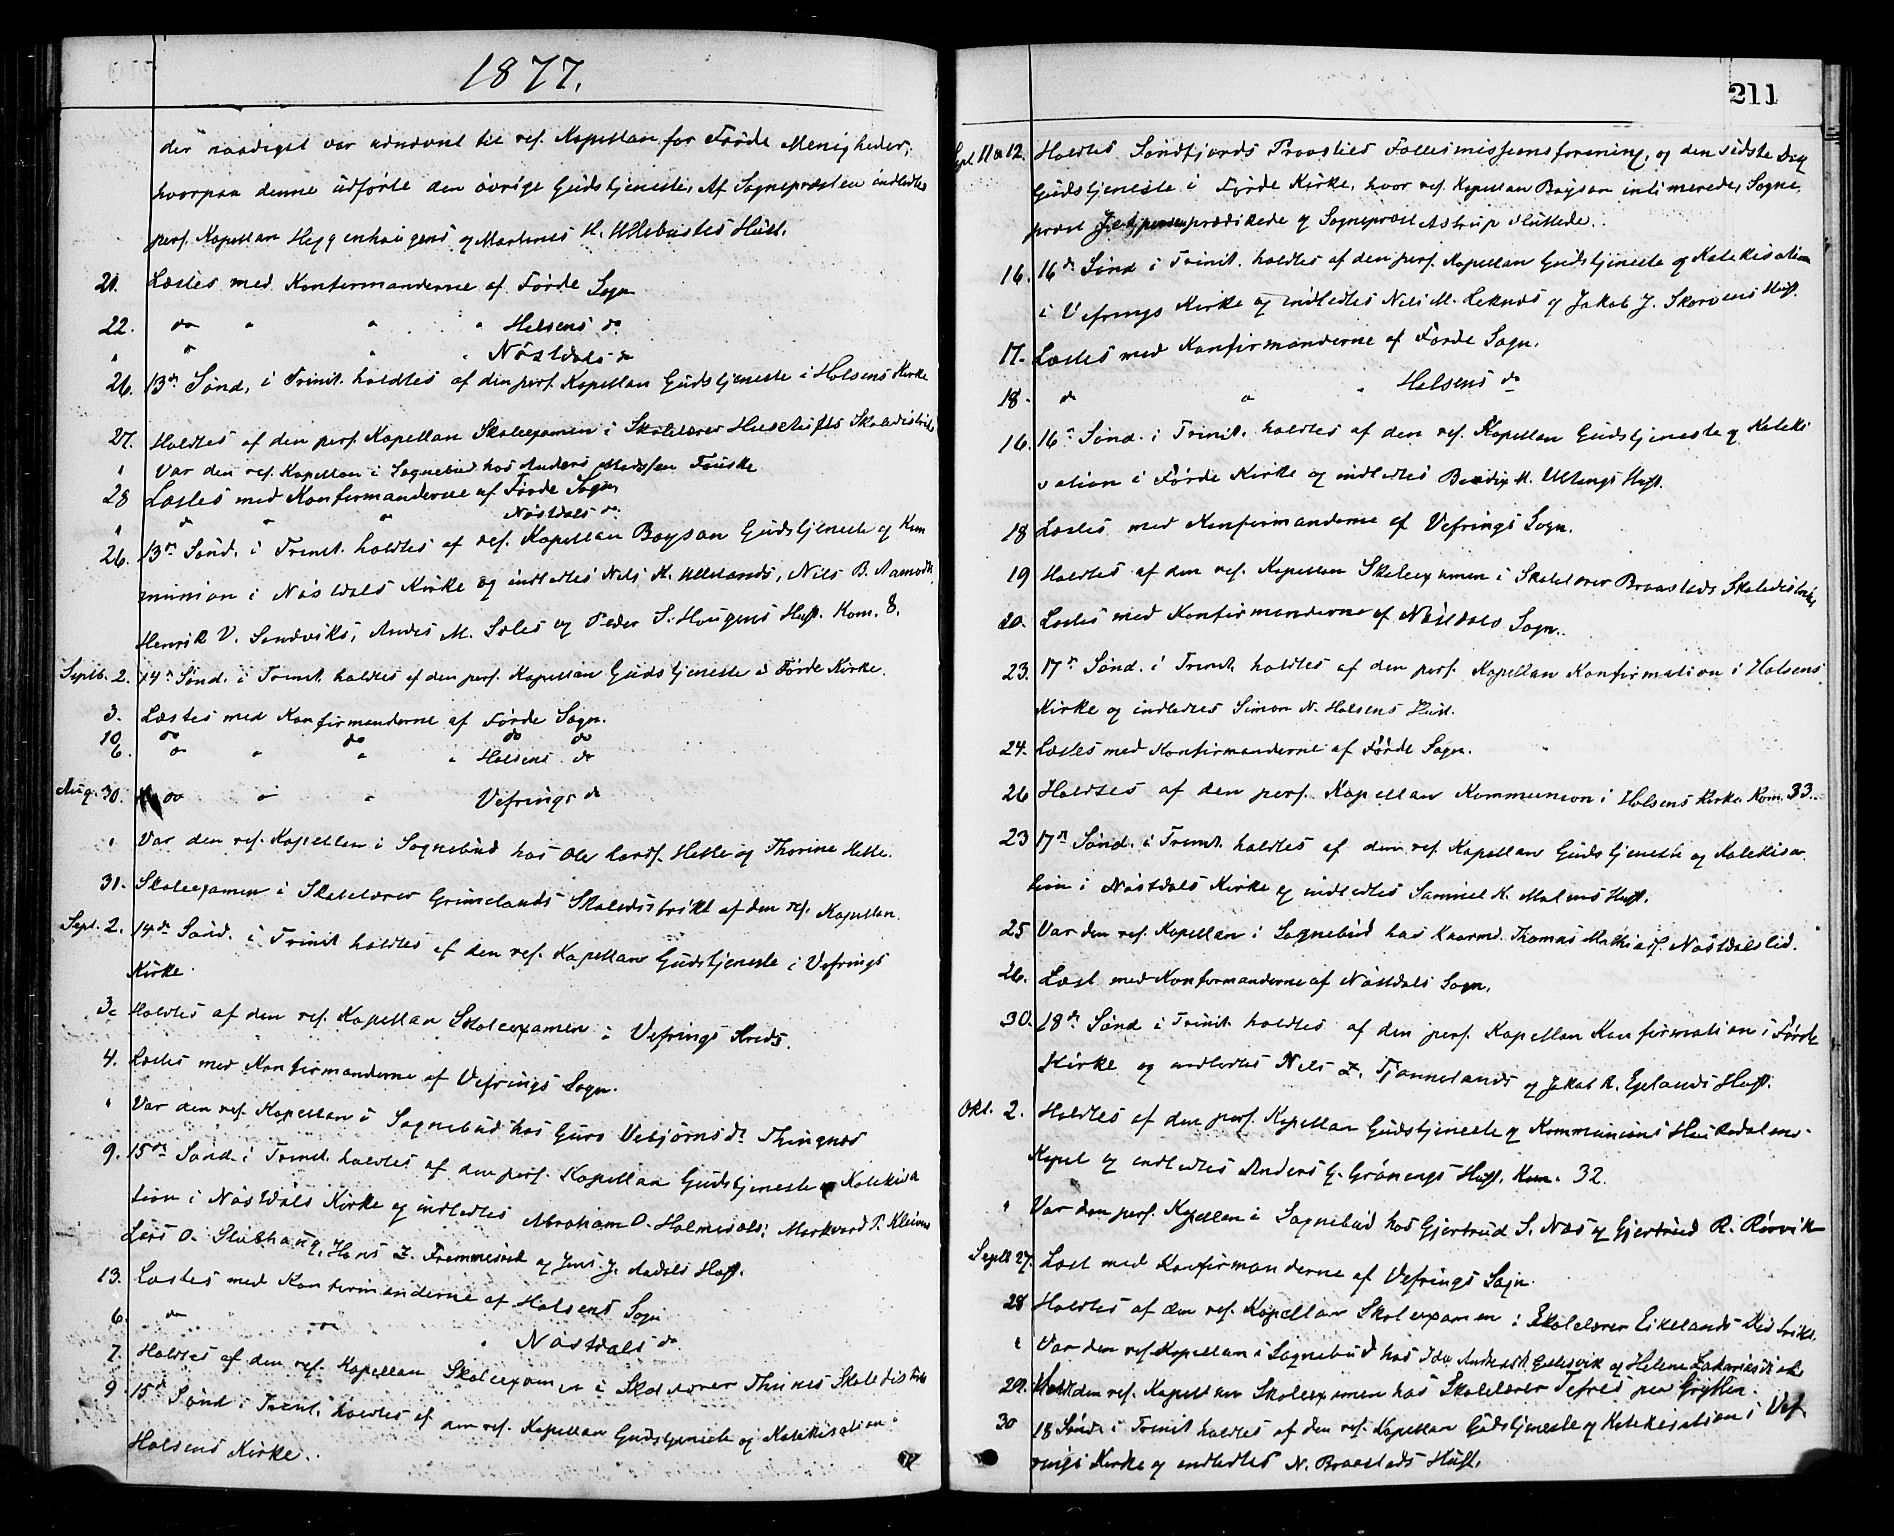 1877.
der naadigst var udnævnt til res. Kapellan for Førde Menigheder,
hvorpaa denne udførte den øvrige Gudstjeneste. Af Sognepræsten indledtes
pers. Kapellan Heggenhaugens og Martenes H. Ullebustes Hust.
21. Læstes med Konfirmanderne af Førde Sogn
22. do " " " Holsens do
" do " " Nøstdals do
26. 13de Sønd. i Trinit. holdtes af den pers. Kapellan Gudstjeneste i Holsens Kirke
27. Holdtes af den pers. Kapellan Skoleexamen i Skolelærer Skoledistrikt
" Var den res. Kapellan i Sognebud hos Anders Madssen Fauske
28 Læstes med Konfirmanderne af Førde Sogn
" do " do Nøstdals do
26. 13de Sønd. i Trinit. holdtes af res. Kapellan Boysan Gudstjeneste og Kom
munion i Nøstdals Kirke og indledtes Nils K. Ullelands, Nils B. Aamodt
Henrik V. Sandviks, Andes M. Soles og Peder S. Hougens Hust. Kom. 8.
Septb. 2. 14de Sønd. i Trinit. holdtes af den pers. Kapellan Gudstjeneste i Førde Kirke.
3. Læstes med Konfirmanderne af Førde Sogn.
10 do do do do
6. do " " " Holsens do
Aug. 30. do " " Vefrings do
" Var den res. Kapellan i Sognebud hos Ole Larss. Helle og Thorine Helle.
31. Skoleexamen i Skolelærer Grimelands Skoledistrikt af den res. Kapellan.
Sept. 2. 14de Sønd. i Trinit holdtes af den res. Kapellan Gudstjeneste i Vefrings
Kirke.
3. Holdtes af den res. Kapellan Skoleexamen i Vefrings Kreds.
4. Læstes med Konfirmanderne af Vefrings Sogn.
" Var den res. Kapellan i Sognebud hos Guro Vebjørnsdr Thingnæs
9. 15de Sønd. i Trinit. holdtes af den pers. Kapellan Gudstjeneste og Katekisa
tion i Nøstdals Kirke og indledtes Abraham O. Holmedals, Markvard P. Kleivens
Lars O. Slaathaug, Hans Z. og Jens J. Aadals Hust.
13. Læstes med Konfirmanderne af Holsens Sogn
6. do " do " Nøstdals do
7. Holdtes af den res. Kapellan Skoleexamen i Skolelærer Thunes Skoledistrikt
9 15de Sønd i Trinit. holdtes af den res. Kapellan Gudstjeneste og Katekisation i
Holsens Kirke.
211
Sept. 11 & 12. Holdtes Søndfjords Provsties Fællesmissionsforening, og den sidste Dag
Gudstjeneste i Førde Kirke, hvor res. Kapellan Boysan intimerede, Sogne
præst prædikede og Sognepræst Astrup sluttede.
16. 16de Sønd i Trinit. holdtes af den pers. Kapellan Gudstjeneste og Katekisation
i Vefrings Kirke og indledtes Nils M. Leknæs og Jakob J. Skorvens Hust.
17. Læstes med Konfirmanderne af Førde Sogn.
18. do " " Holsens do
16. 16de Sønd. i Trinit. holdtes af den res. Kapellan Gudstjeneste og Kateki
sation i Førde Kirke og indledtes Bendix M. Ultangs Hust.
18 Læstes med Konfirmanderne af Vefrings Sogn.
19 Holdtes af den res. Kapellan Skoleexamen i Skolelærer Braastads Skoledistrikt
20. Læstes med Konfirmanderne af Nøstdals Sogn.
23. 17de Sønd. i Trinit. holdtes af den pers. Kapellan Konfirmation i Holsens
Kirke og indledtes Simon N. Holsens Hust.
24. Læstes med Konfirmanderne af Førde Sogn.
26 Holdtes af den pers. Kapellan Kommunion i Holsens Kirke. Kom. 33.
23 17de Sønd. i Trinit. holdtes af den res. Kapellan Gudstjeneste og Katekisa
tion i Nøstdals Kirke og indledtes Samuel K. Molens Hust.
25 Var den res. Kapellan i Sognebud hos Kaarmd. Thomas Mathiass. Nøstdalslid.
26. Læst med Konfirmanderne af Nøstdals Sogn.
30. 18de Sønd i Trinit. holdtes af den pers. Kapellan Konfirmation i Førde
Kirke og indledtes Nels Z. Tjønnelands og Jakob R. Espelands Hust.
Okt. 2. Holdtes af den pers. Kapellan Gudstjeneste og Kommunion i Haukedalens
Kapel og indledtes Anders G. Grønengs Hust. Kom. 32.
" Var den pers. Kapellan i Sognebud hos Gjertrud S. Næs og Gjertrud R. Rørvik
Septb 27. Læst med Konfirmanderne af Vefrings Sogn.
28 Holdtes af den res. Kapellan Skoleexamen i Skolelærer Eikelands Distrikt.
" Var den res. Kapellan i Sognebud hos Ida Andersdr Gullesvik og Helene Zakariasdr
29. Holdt den res. Kapellan Skoleexamen hos Skolelærer Tefres paa Gryllen.
30 18 Sønd. i Trinit holdtes af den res. Kapellan Gudstjeneste og Katekisation i Vef
rings Kirke og indledtes N. Braastads Hust.